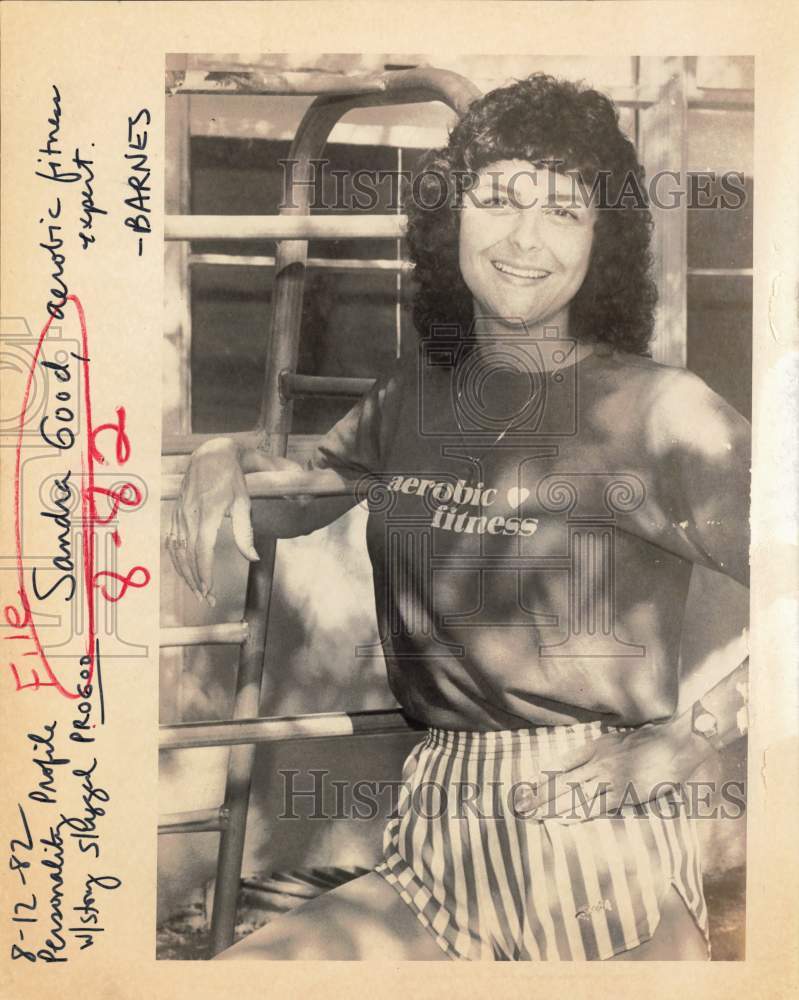 8-12-82
Personality Profile
w/story s/bygel PROGOO
File
Sandra Good, aerobic fitness
expert.
-BARNES
8-82
HISTORIC IMAGES
aerobic
fitness
HISTORIC IMAGES